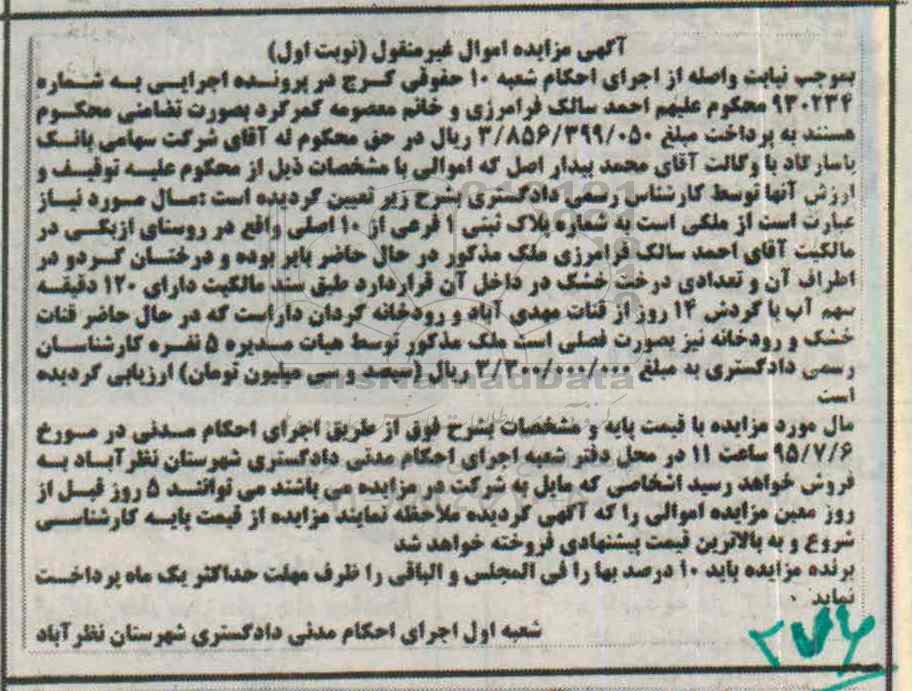 آگهی مزایده اموال غیرمنقول (نوبت اول)
بموجب نیابت واصله از اجرای احکام شعبه ۱۰ حقوقی کرج در پرونده اجرایی به شماره
۹۳۰۲۳۴ محکوم علیهم احمد سالک فرامرزی و خانم معصومه کمرگرد بصورت تضامنی محکوم
هستند به پرداخت مبلغ ۳/۸۵۶/۳۹۹/۰۵۰ ریال در حق محکوم له آقای شرکت سهامی بانک
پاسارگاد با وکالت آقای محمد بیدار اصل که اموالی با مشخصات ذیل از محکوم علیه توقیف و
ارزش آنها توسط کارشناس رسمی دادگستری بشرح زیر تعیین گردیده است :مال مورد نیاز
عبارت است از ملکی است به شماره پلاک ثبتی ۱ فرعی از ۱۰ اصلی واقع در روستای ازبکی در
مالکیت آقای احمد سالک فرامرزی ملک مذکور در حال حاضر بایر بوده و درختان گردو در
اطراف آن و تعدادی درخت خشک در داخل آن قراردارد طبق سند مالکیت دارای ۱۲۰ دقیقه
سهم آب با گردش ۱۴ روز از قنات مهدی آباد و رودخانه کردان داراست که در حال حاضر قنات
خشک و رودخانه نیز بصورت فصلی است ملک مذکور توسط هیات مدیره ۵ نفره کارشناسان
رسمی دادگستری به مبلغ ۳/۳۰۰/۰۰۰/۰۰۰ ریال (سیصد و سی میلیون تومان) ارزیابی گردیده
است
مال مورد مزایده با قیمت پایه و مشخصات بشرح فوق از طریق اجرای احکام مدنی در مورخ
۹۵/۷/۶ ساعت ۱۱ در محل دفتر شعبه اجرای احکام مدنی دادگستری شهرستان نظرآباد به
فروش خواهد رسید اشخاصی که مایل به شرکت در مزایده می باشند می توانند ۵ روز قبل از
روز معین مزایده اموالی را که آگهی گردیده ملاحظه نمایند مزایده از قیمت پایه کارشناسی
شروع و به بالاترین قیمت پیشنهادی فروخته خواهد شد
برنده مزایده باید ۱۰ درصد بها را فی المجلس و الباقی را ظرف مهلت حداکثر یک ماه پرداخت
نماید .
شعبه اول اجرای احکام مدنی دادگستری شهرستان نظرآباد
۲۷۶
ParsNamadData